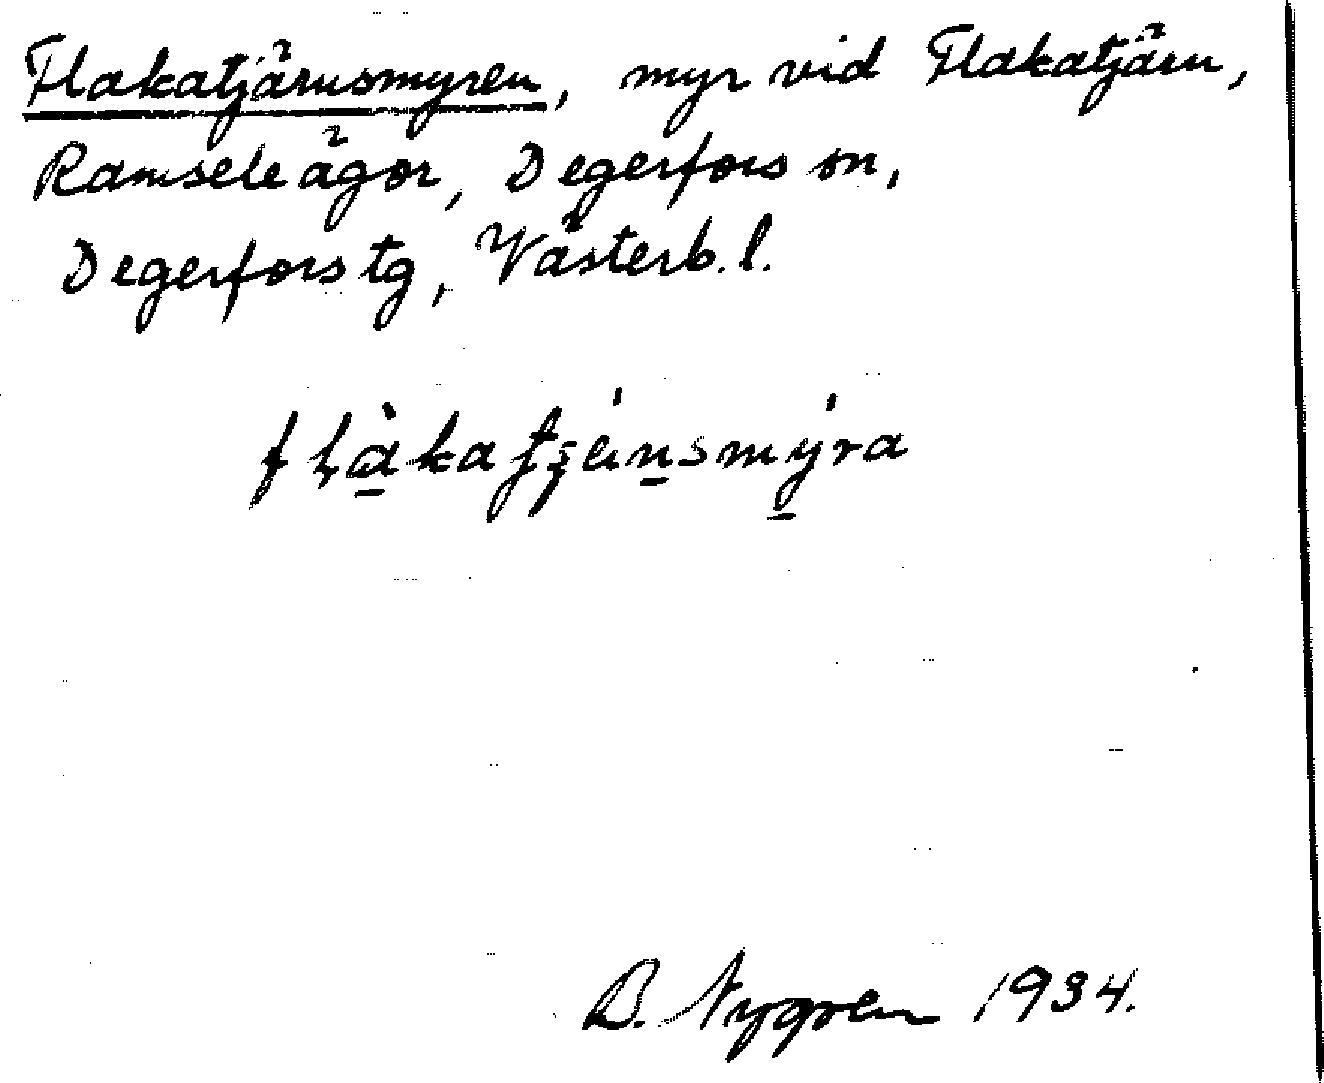 Flakatjärnsmyren, myr vid Flakatjärn,
Ramsele ägor, Degerfors sn,
Degerfors tg, Västerb. l.
B. Nygren 1934.